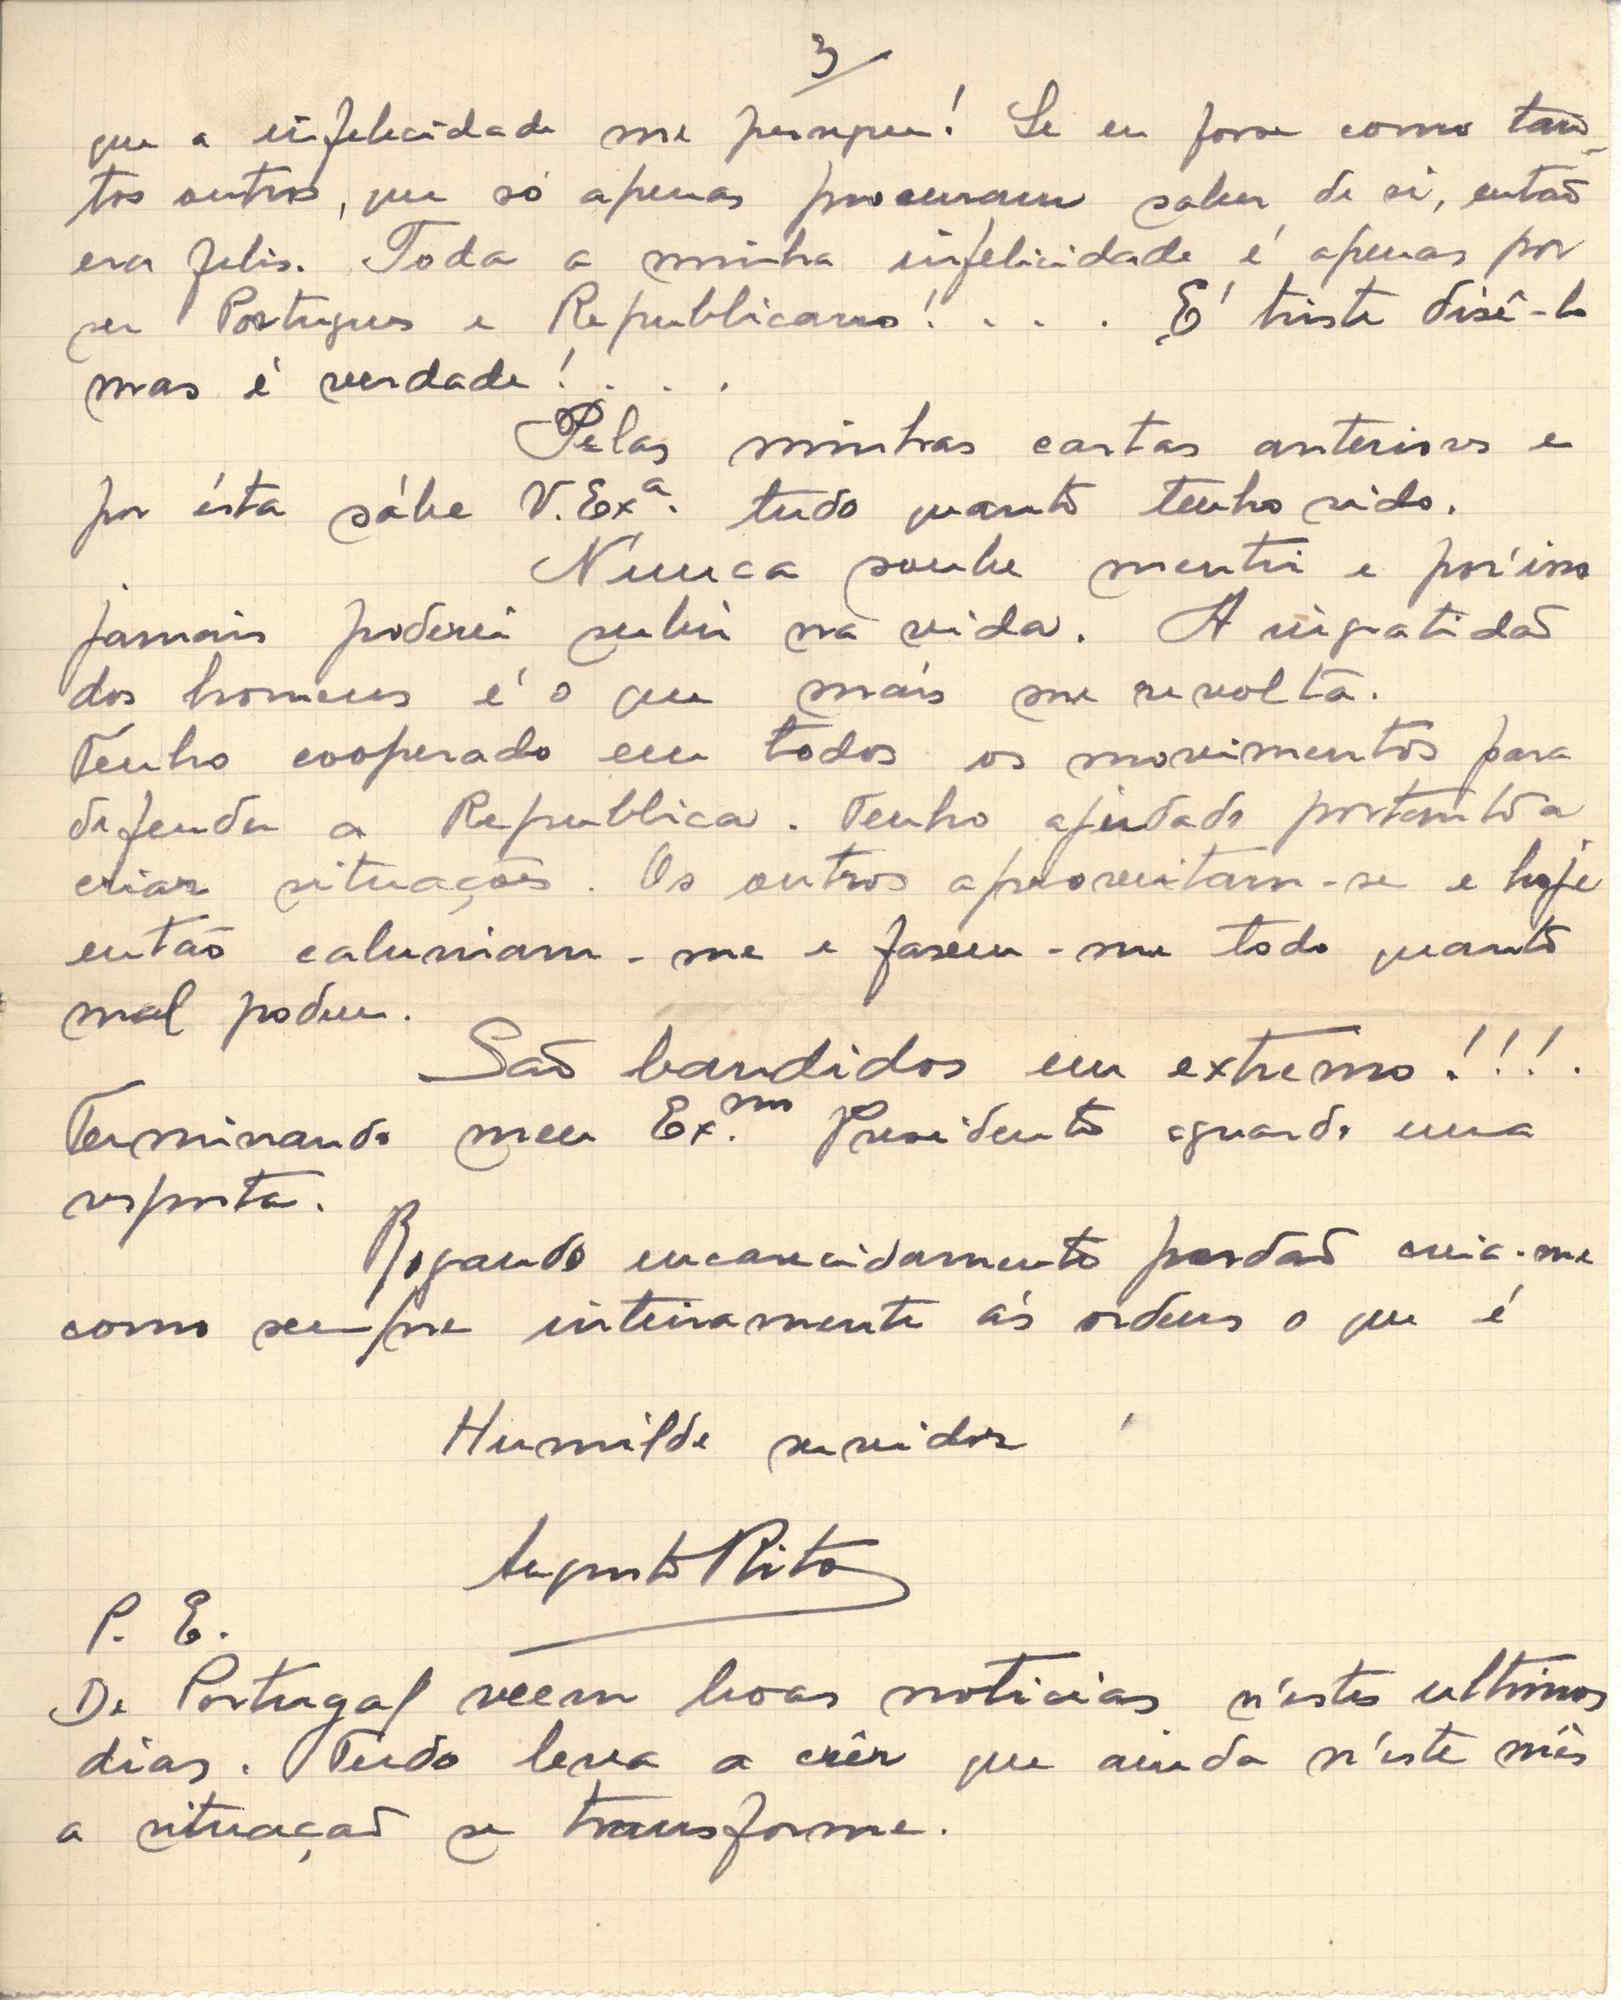 3/
que a infelicidade me persegue! Se eu fosse como tan-
tos outros, que só apenas procuram saber de si, então
era felis. Toda a minha infelicidade é apenas por
ser Portugues e Republicano!.... É triste disê-lo
mas é verdade!....
Pelas minhas cartas anteriores e
por ésta sábe V. Exª. tudo quanto tenho sido.
Nunca soube mentir e por'isso
jamais poderei subir na vida. A ingratidão
dos homens é o que mais me revolta.
Tenho cooperado em todos os movimentos para
defender a Republica. Tenho ajudado portanto a
criar situações. Os outros aproveitam-se e hoje
então caluniam-me e fasem-me todo quanto
mal podem.
São bandidos em extremo!!!.
Terminando meu Ex.mo Presidente aguardo uma
resposta.
Rogando encarecidamente perdão creia-me
como sempre inteiramente ás ordens o que é
Humilde servidor
Augusto Rita
P. E.
De Portugal vêem boas noticias n'estes ultimos
dias. Tudo leva a crêr que ainda n'este mês
a situação se transforme.